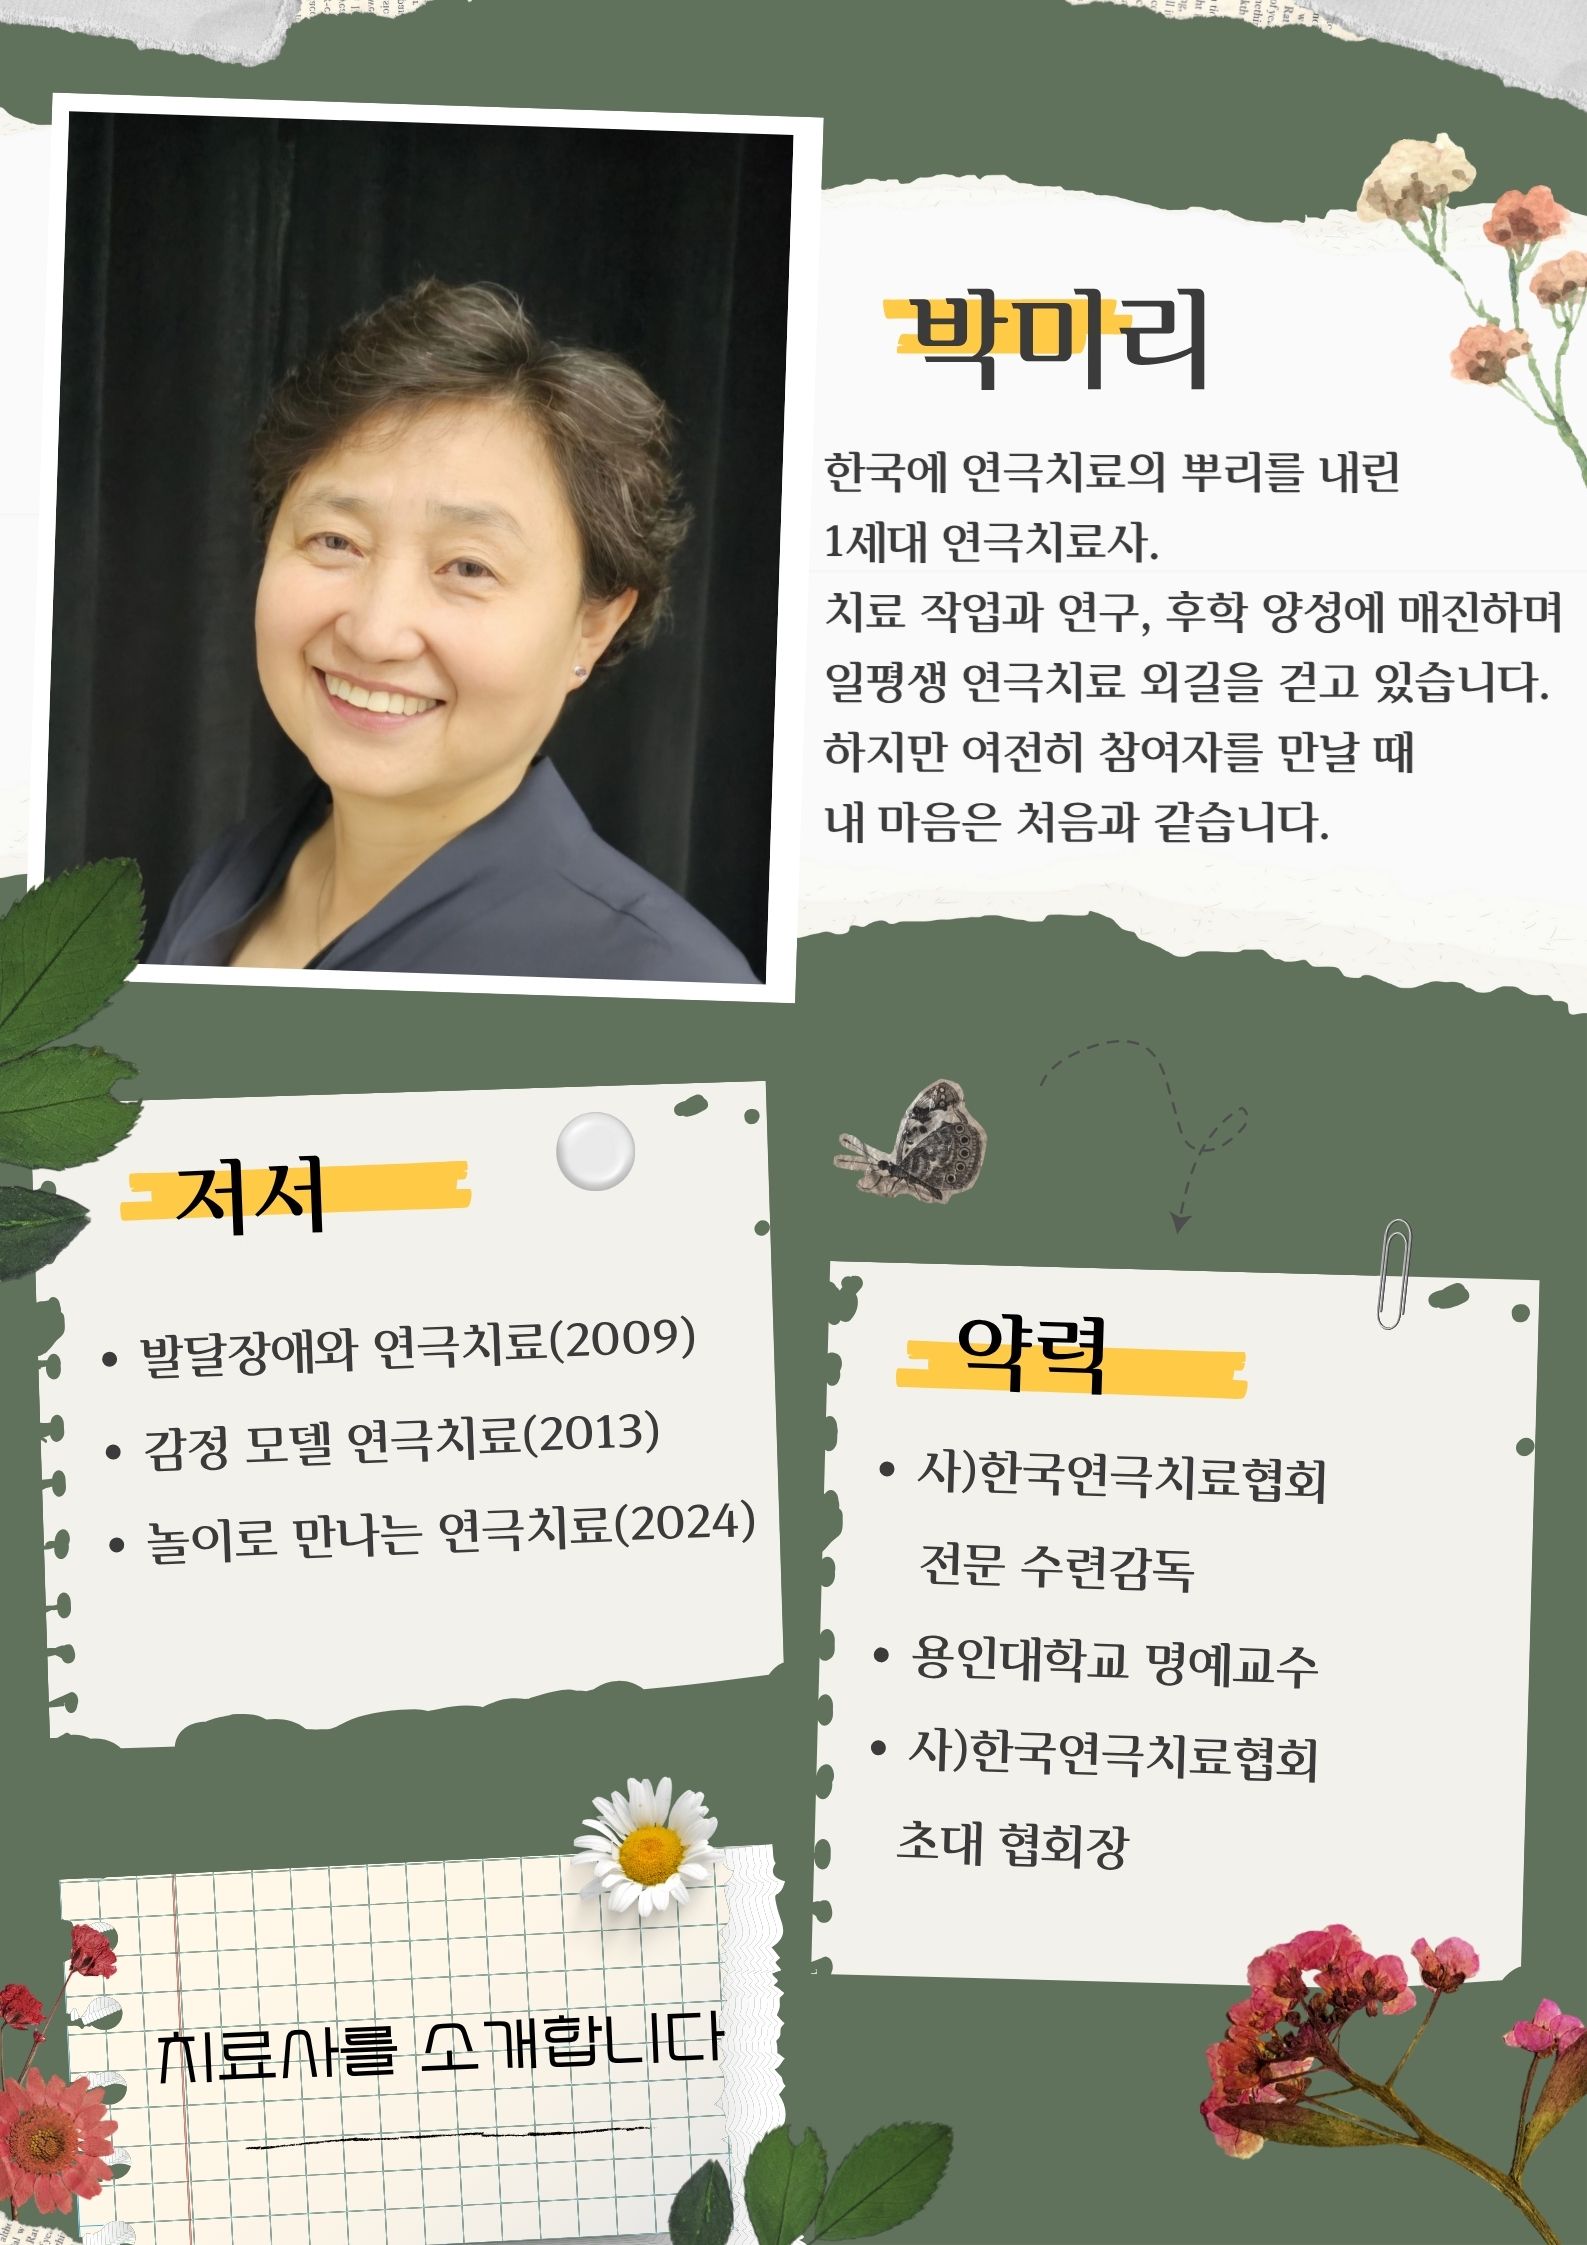 박마리
한국에 연극치료의 뿌리를 내린
1세대 연극치료사.
치료 작업과 연구, 후학 양성에 매진하며
일평생 연극치료 외길을 걷고 있습니다.
하지만 여전히 참여자를 만날 때
내 마음은 처음과 같습니다.
저서
• 발달장애와 연극치료(2009)
• 감정 모델 연극치료(2013)
• 놀이로 만나는 연극치료(2024)
약력
• 사)한국연극치료협회
전문 수련감독
• 용인대학교 명예교수
• 사)한국연극치료협회
초대 협회장
치료사를 소개합니다